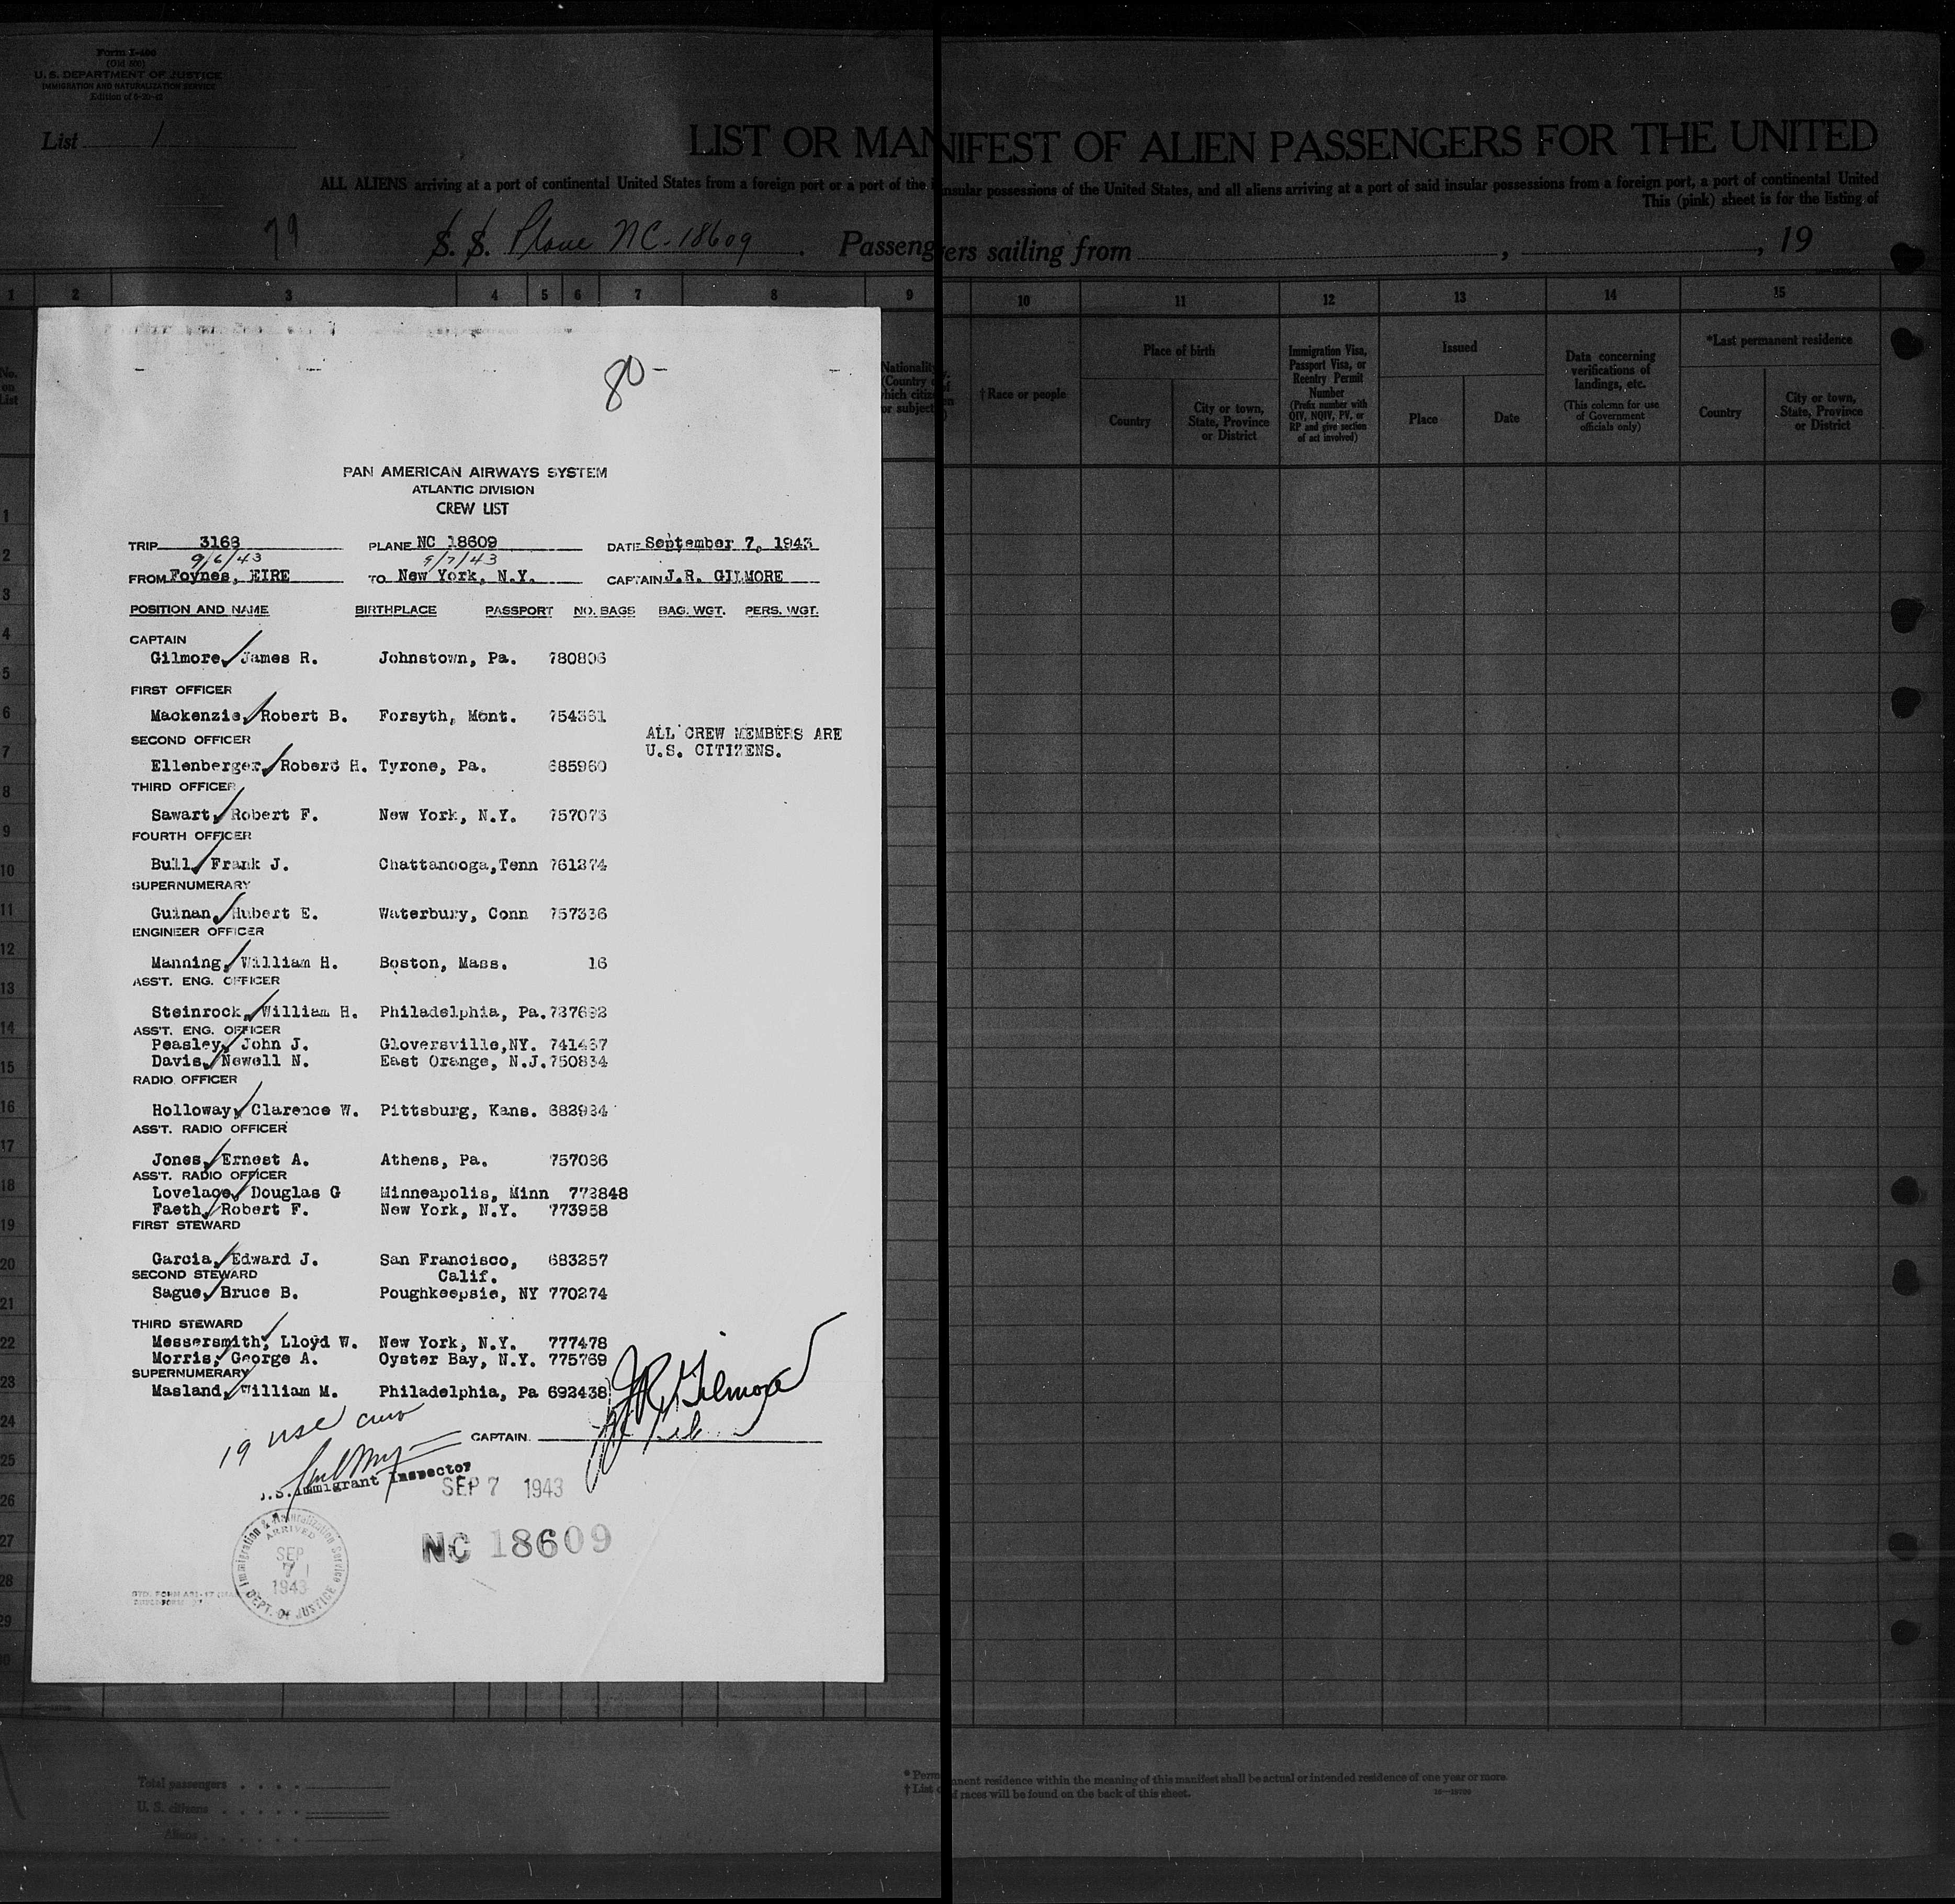 Form I-466
(Old 500)
U. S. DEPARTMENT OF JUSTICE
IMMIGRATION AND NATURALIZATION SERVICE
List 1
LIST OR MANIFEST OF ALIEN PASSENGERS FOR THE UNITED
ALL ALIENS arriving at a port of continental United States from a foreign port or a port of the insular possessions of the United States, and all aliens arriving at a port of said insular possessions from a foreign port, a port of continental United
This (pink) sheet is for the listing of
79 S. S. Plane NC-18609 . Passengers sailing from , , 19
1 2 3 4 5 6 7 8 9 10 11 12 13 14 15
No. on List
Nationality
†Race or people
Place of birth
Country
City or town, State, Province or District
Immigration Visa, Passport Visa, or Reentry Permit Number
(Prefix number with QIV, NQIV, PV, or RP and give section of act involved)
Issued
Place
Date
Data concerning verifications of landings, etc.
(This column for use of Government officials only)
*Last permanent residence
Country
City or town, State, Province or District
80
PAN AMERICAN AIRWAYS SYSTEM
ATLANTIC DIVISION
CREW LIST
TRIP 3168 PLANE NC 18609 DATE September 7, 1943
9/6/43 9/7/43
FROM Foynes, EIRE TO New York, N.Y. CAPTAIN J.R. GILMORE
POSITION AND NAME BIRTHPLACE PASSPORT NO. BAGS BAG. WGT. PERS. WGT.
CAPTAIN
Gilmore, James R. Johnstown, Pa. 780806
FIRST OFFICER
Mackenzie, Robert B. Forsyth, Mont. 754361
ALL CREW MEMBERS ARE
U.S. CITIZENS.
SECOND OFFICER
Ellenberger, Robert H. Tyrone, Pa. 685960
THIRD OFFICER
Sawart, Robert F. New York, N.Y. 757073
FOURTH OFFICER
Bull, Frank J. Chattanooga,Tenn 761274
SUPERNUMERARY
Guinan, Hubert E. Waterbury, Conn 757336
ENGINEER OFFICER
Manning, William H. Boston, Mass. 16
ASS'T. ENG. OFFICER
Steinrock, William H. Philadelphia, Pa. 727692
ASS'T. ENG. OFFICER
Peasley, John J. Gloversville,NY. 741467
Davis, Newell N. East Orange, N.J. 750834
RADIO OFFICER
Holloway, Clarence W. Pittsburg, Kans. 682924
ASS'T. RADIO OFFICER
Jones, Ernest A. Athens, Pa. 757086
ASS'T. RADIO OFFICER
Lovelace, Douglas G Minneapolis, Minn 772848
Faeth, Robert F. New York, N.Y. 773958
FIRST STEWARD
Garcia, Edward J. San Francisco, 683257
Calif.
SECOND STEWARD
Sague, Bruce B. Poughkeepsie, NY 770274
THIRD STEWARD
Messersmith, Lloyd W. New York, N.Y. 777478
Morris, George A. Oyster Bay, N.Y. 775769
SUPERNUMERARY
Masland, William M. Philadelphia, Pa 692438
JR Gilmore
19 USC
CAPTAIN
U.S. Immigrant Inspector
SEP 7 1943
NC 18609
Immigration & Naturalization Service
ARRIVED
SEP
7
1943
DEPT. OF JUSTICE
1
2
3
4
5
6
7
8
9
10
11
12
13
14
15
16
17
18
19
20
21
22
23
24
25
26
27
28
29
Total passengers
U. S. citizens
Aliens
* Permanent residence within the meaning of this manifest shall be actual or intended residence of one year or more.
† List of races will be found on the back of this sheet.